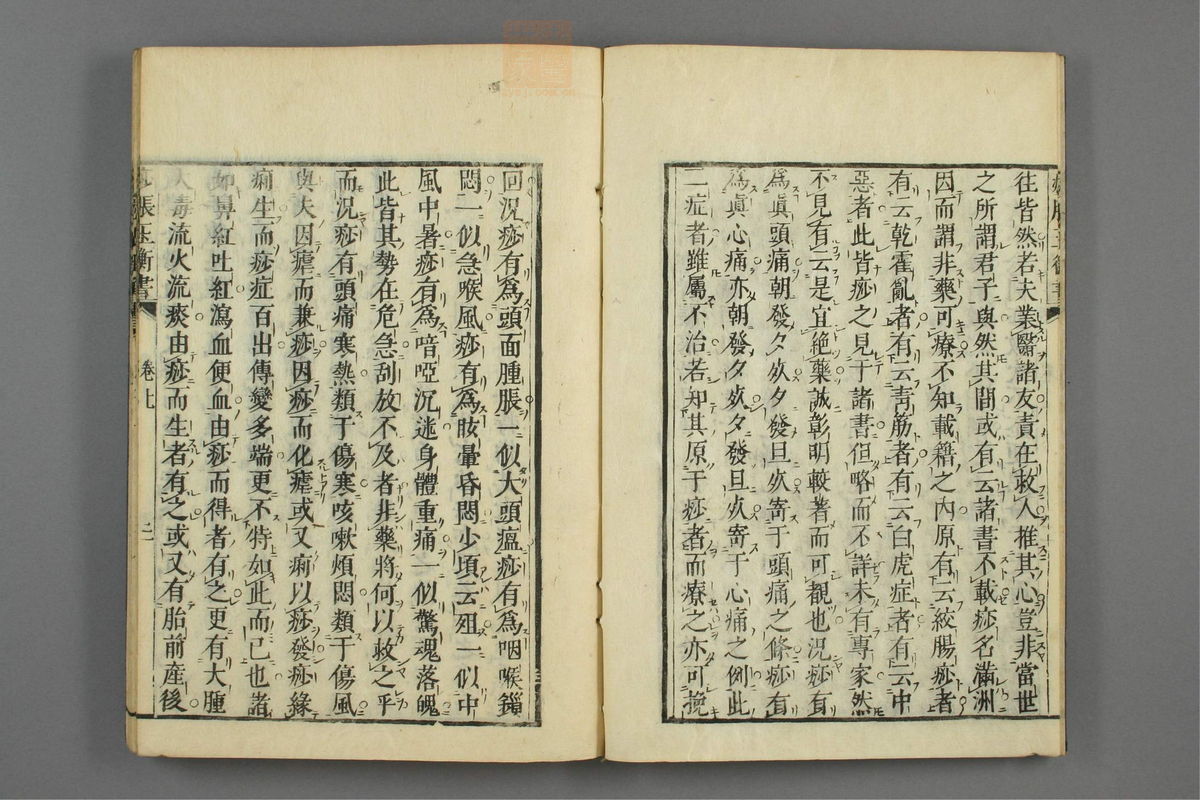 往皆然若夫業醫諸友責在救人推其心豈非當世
之所謂君子與然其間或有云諸書不載痧名滿洲
因而謂非藥可療不知載籍之内原有云絞腸痧者
有云乾霍亂者有云青筋者有云白虎症者有云中
惡者此皆痧之見于諸書但略而不詳未有專家然
不見有云是宜絶藥誠彰明較著而可覩也況痧有
爲眞頭痛朝發夕死夕發旦死寄于頭痛之條痧有
爲眞心痛亦朝發夕死夕發旦死寄于心痛之例此
二症者雖屬不治若知其原于痧者而療之亦可挽
回況痧有爲頭面腫脹一似大頭瘟痧有爲咽喉鎖
悶一似急喉風痧有爲眩暈昏悶少頃云殂一似中
風中暑痧有爲喑啞沉迷身體重痛一似驚魂落魄
此皆其勢在危急刮放不及者非藥將何以救之乎
而況痧有頭痛寒熱類于傷寒咳嗽煩悶類于傷風
與夫因瘧而兼痧因痧而化瘧或又痢以痧發痧緣
痢生而痧症百出傳變多端更不特如此而已也者
如鼻紅吐紅瀉血便血由痧而得者有之更有大腫
大毒流火流痰由痧而生者有之或又有胎前産後
痧脹玉衡書
卷上
二